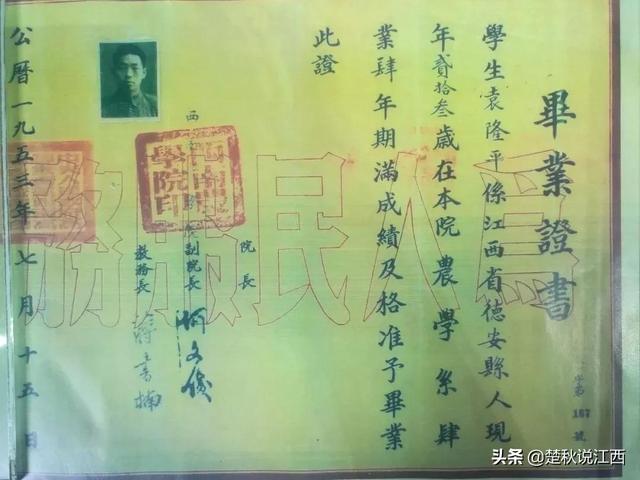 畢業證書
學生袁隆平係江西省德安縣人現
年貳拾叁歲在本院農學系肆
業肆年期滿成績及格准予畢業
此證
院長
西南農學院副院長 何文俊
教務長 蔣書楠
公曆一九五三年七月十五日
爲人民服務
西南農學院印
头条 @楚秋说江西